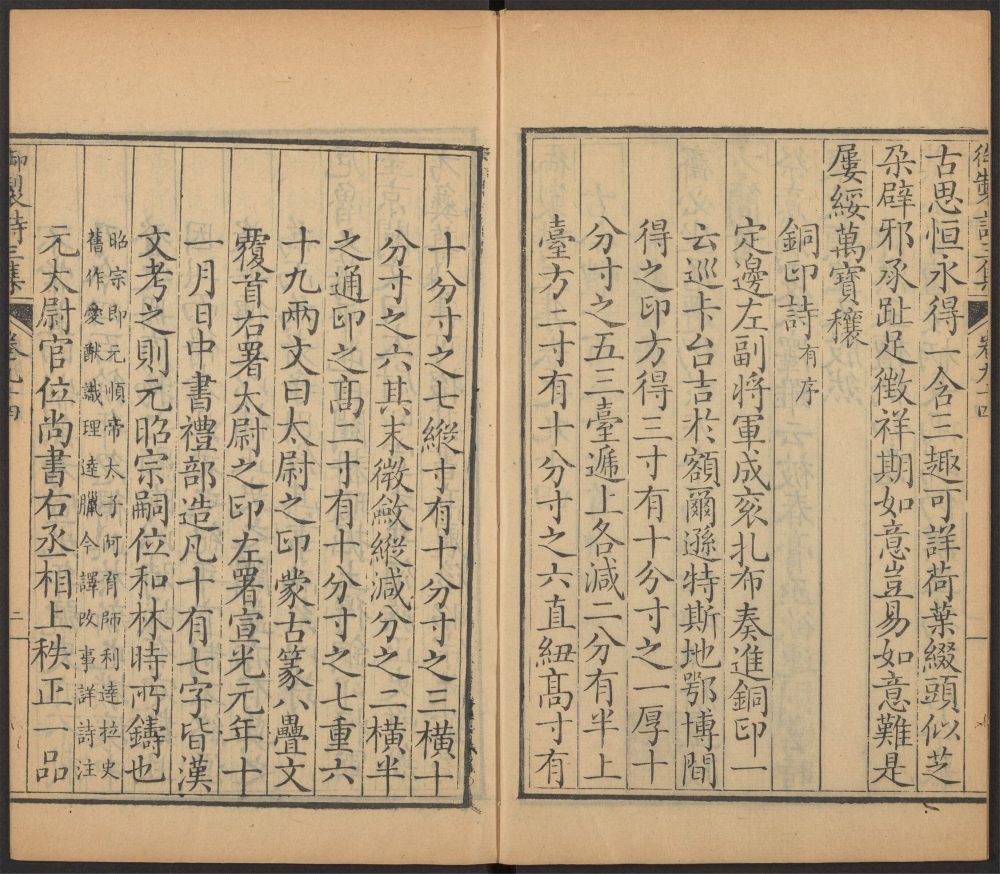 御製詩三集
卷九十四
古思恒永得一含三趣可詳荷葉綴頭似芝
朶辟邪承趾足徴祥期如意豈易如意難是
屢綏萬寶穰
銅印詩有序
定邊左副將軍成衮扎布奏進銅印一
云巡卡台吉於額爾遜特斯地鄂博間
得之印方得三寸有十分寸之一厚十
分寸之五三臺遞上各減二分有半上
臺方二寸有十分寸之六直紐髙寸有
十分寸之七縱寸有十分寸之三横十
分寸之六其末微斂縱減分之二横半
之通印之髙二寸有十分寸之七重六
十九兩文曰太尉之印蒙古篆八疊文
覆首右署太尉之印左署宣光元年十
一月日中書禮部造凡十有七字皆漢
文考之則元昭宗嗣位和林時所鑄也
昭宗即元順帝太子阿育師利達拉史
舊作愛猷識理達臘今譯改事詳詩注
元太尉官位尚書右丞相上秩正一品
御製詩三集
卷九十四
二